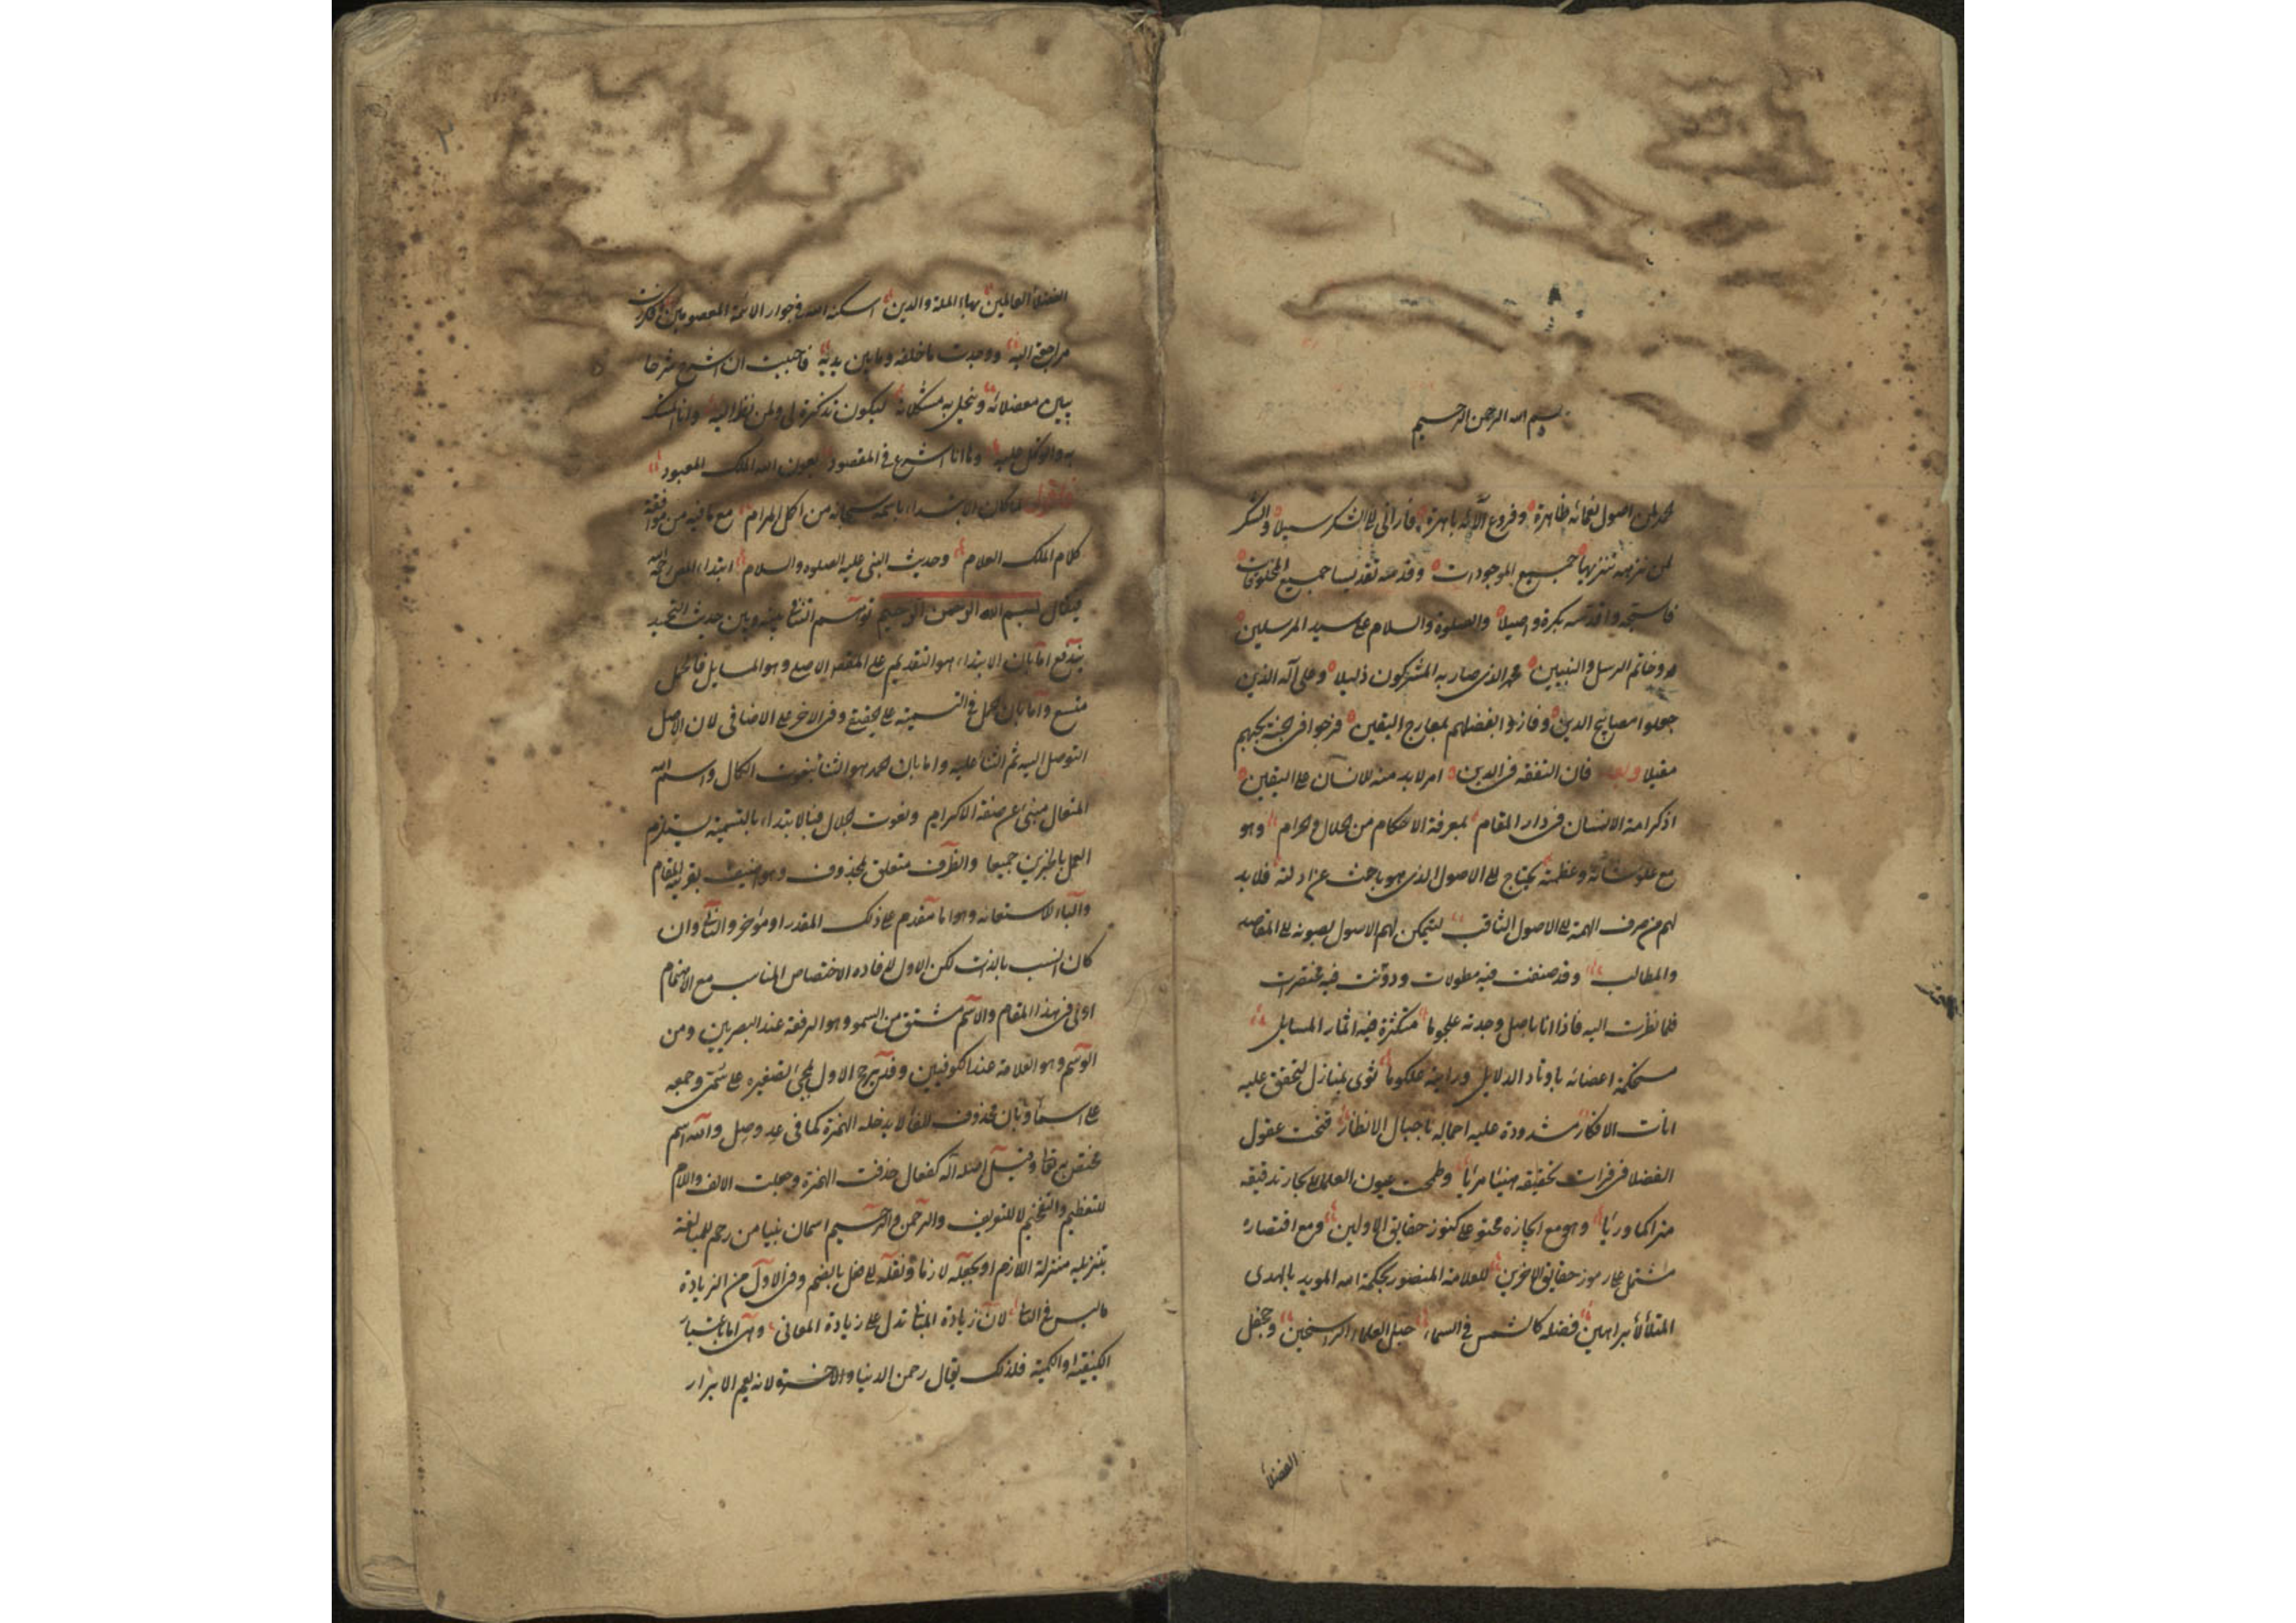 بسم الله الرحمن الرحيم
نحمد لمن اصول نعمائه ظاهرة وفروع آلائه باهرة فارانى الى الشكر سبيلا والشكر
لمن نزهه تنزيها جميع الموجودات وقدسه تقديسا جميع المخلوقات
فاسبحه واقدسه بكرة واصيلا والصلوة والسلام على سيد المرسلين
وخاتم الرسل والنبيين محمد الذى صار به المشركون ذليلا وعلى آله الذين
جعلوا مصابيح الدين وفازوا بفضلهم بمعارج اليقين فرجوا فى الجنة بحبهم
مقيلا وبعد فان التفقه فى الدين امر لابد منه للانسان على اليقين
اذ كرامة الانسان فى دار المقام بمعرفة الاحكام من الحلال والحرام وهو
مع علو شانه وعظمته يحتاج الى الاصول الذى هو باحث عن ادلته فلابد
لهم من صرف الهمة الى الاصول الثاقب ليتمكن لهم الاصول بصوبه الى المقاصد
والمطالب وقد صنفت فيه مطولات ودونت فيه مختصرات
فلما نظرت اليه فاذا انا باصل وجدته متكثرة فيه اثمار المسايل
مستحكمة اعضائه باوتاد الدلايل ورايته ثوى بمنازل التحقق عليه
الافكار مشدودة عليه احماله باحبال الانظار عقول
الفضلا فى فرات تحقيقه هنيئا مريا وطمحت عيون العلماء لا بحار تدقيقه
وهو مع ايجازه محتو على كنوز حقايق الاولين ومع اقتصاره
مشتمل على رموز حقايق الاخرين للعلامة المنصور بحكمة الله المويد بالهدى
المتلألأ براهين فضله كالشمس فى السماء جبل العلماء الراسخين
الفضلا
الفضلاء العالمين بهاء الملة والدين اسكنه الله فى جوار الائمة المعصومين
مراجعة اليه ووجدت ما خلفه وما بين يديه فاحببت ان اشرح شرحا
يبين معضلاته وينحل به مشكلاته ليكون تذكرة لى ولمن نظر اليه وانا
به واتوكل عليه وها انا اشرع فى المقصود بعون الله الملك المعبود
لما كان الابتداء باسمه سبحانه من اكمل المرام مع ما فيه من موافقة
كلام الملك العلام وحديث النبى عليه الصلوة والسلام ابتداء المص رحمه الله
فقال بسم الله الرحمن الرحيم توسم التنافى بينه وبين حديث التحميد
يندفع اما بان الابتداء هو التقديم على المقصد الاصلى وهو المسايل فالحمل
متسع واما بان يحمل فى التسمية على الحقيقى وفى الاخر على الاضافى لان الاصل
التوصل اليه ثم الثناء عليه واما بان الحمد هو الثناء بنعوت الكمال واسم الله
المتعال مبنى عن صفة الاكرام ونعوت الجلال فبالابتداء بالتسمية يستلزم
العمل بالخبرين جميعا والظرف متعلق بمحذوف وهو اصنف بقرينة المقام
والباء للاستعانة وهو اما مقدم على ذلك المقدر او مؤخر والثانى وان
كان انسب بالذات لكن الاول لافادة الاختصاص المناسب مع الاهتمام
اولى فى هذا المقام والاسم مشتق من السمو وهو الرفعة عند البصريين ومن
الوسم وهو العلامة عند الكوفيين وقد يرجح الاول بمجئ تصغيره على سمى وجمعه
على اسماء وبان محذوف الفاء لا يدخله الهمزة كما فى عد وصل والله اسم
مختص به تعالى وقيل اصله اله كفعال حذفت الهمزة وجعلت الالف واللام
للتعظيم والتفخيم لا للتعريف والرحمن والرحيم اسمان بنيا من رحم للمبالغة
بتنزيله منزلة اللازم او بجعله لازما ونقله الى فعل بالضم وفى الاول من الزيادة
ما ليس فى الثانى لان زيادة المبانى تدل على زيادة المعانى وهى اما باعتبار
الكيفية او الكمية فلذلك يقال رحمن الدنيا والاخرة لانه يعم الابرار